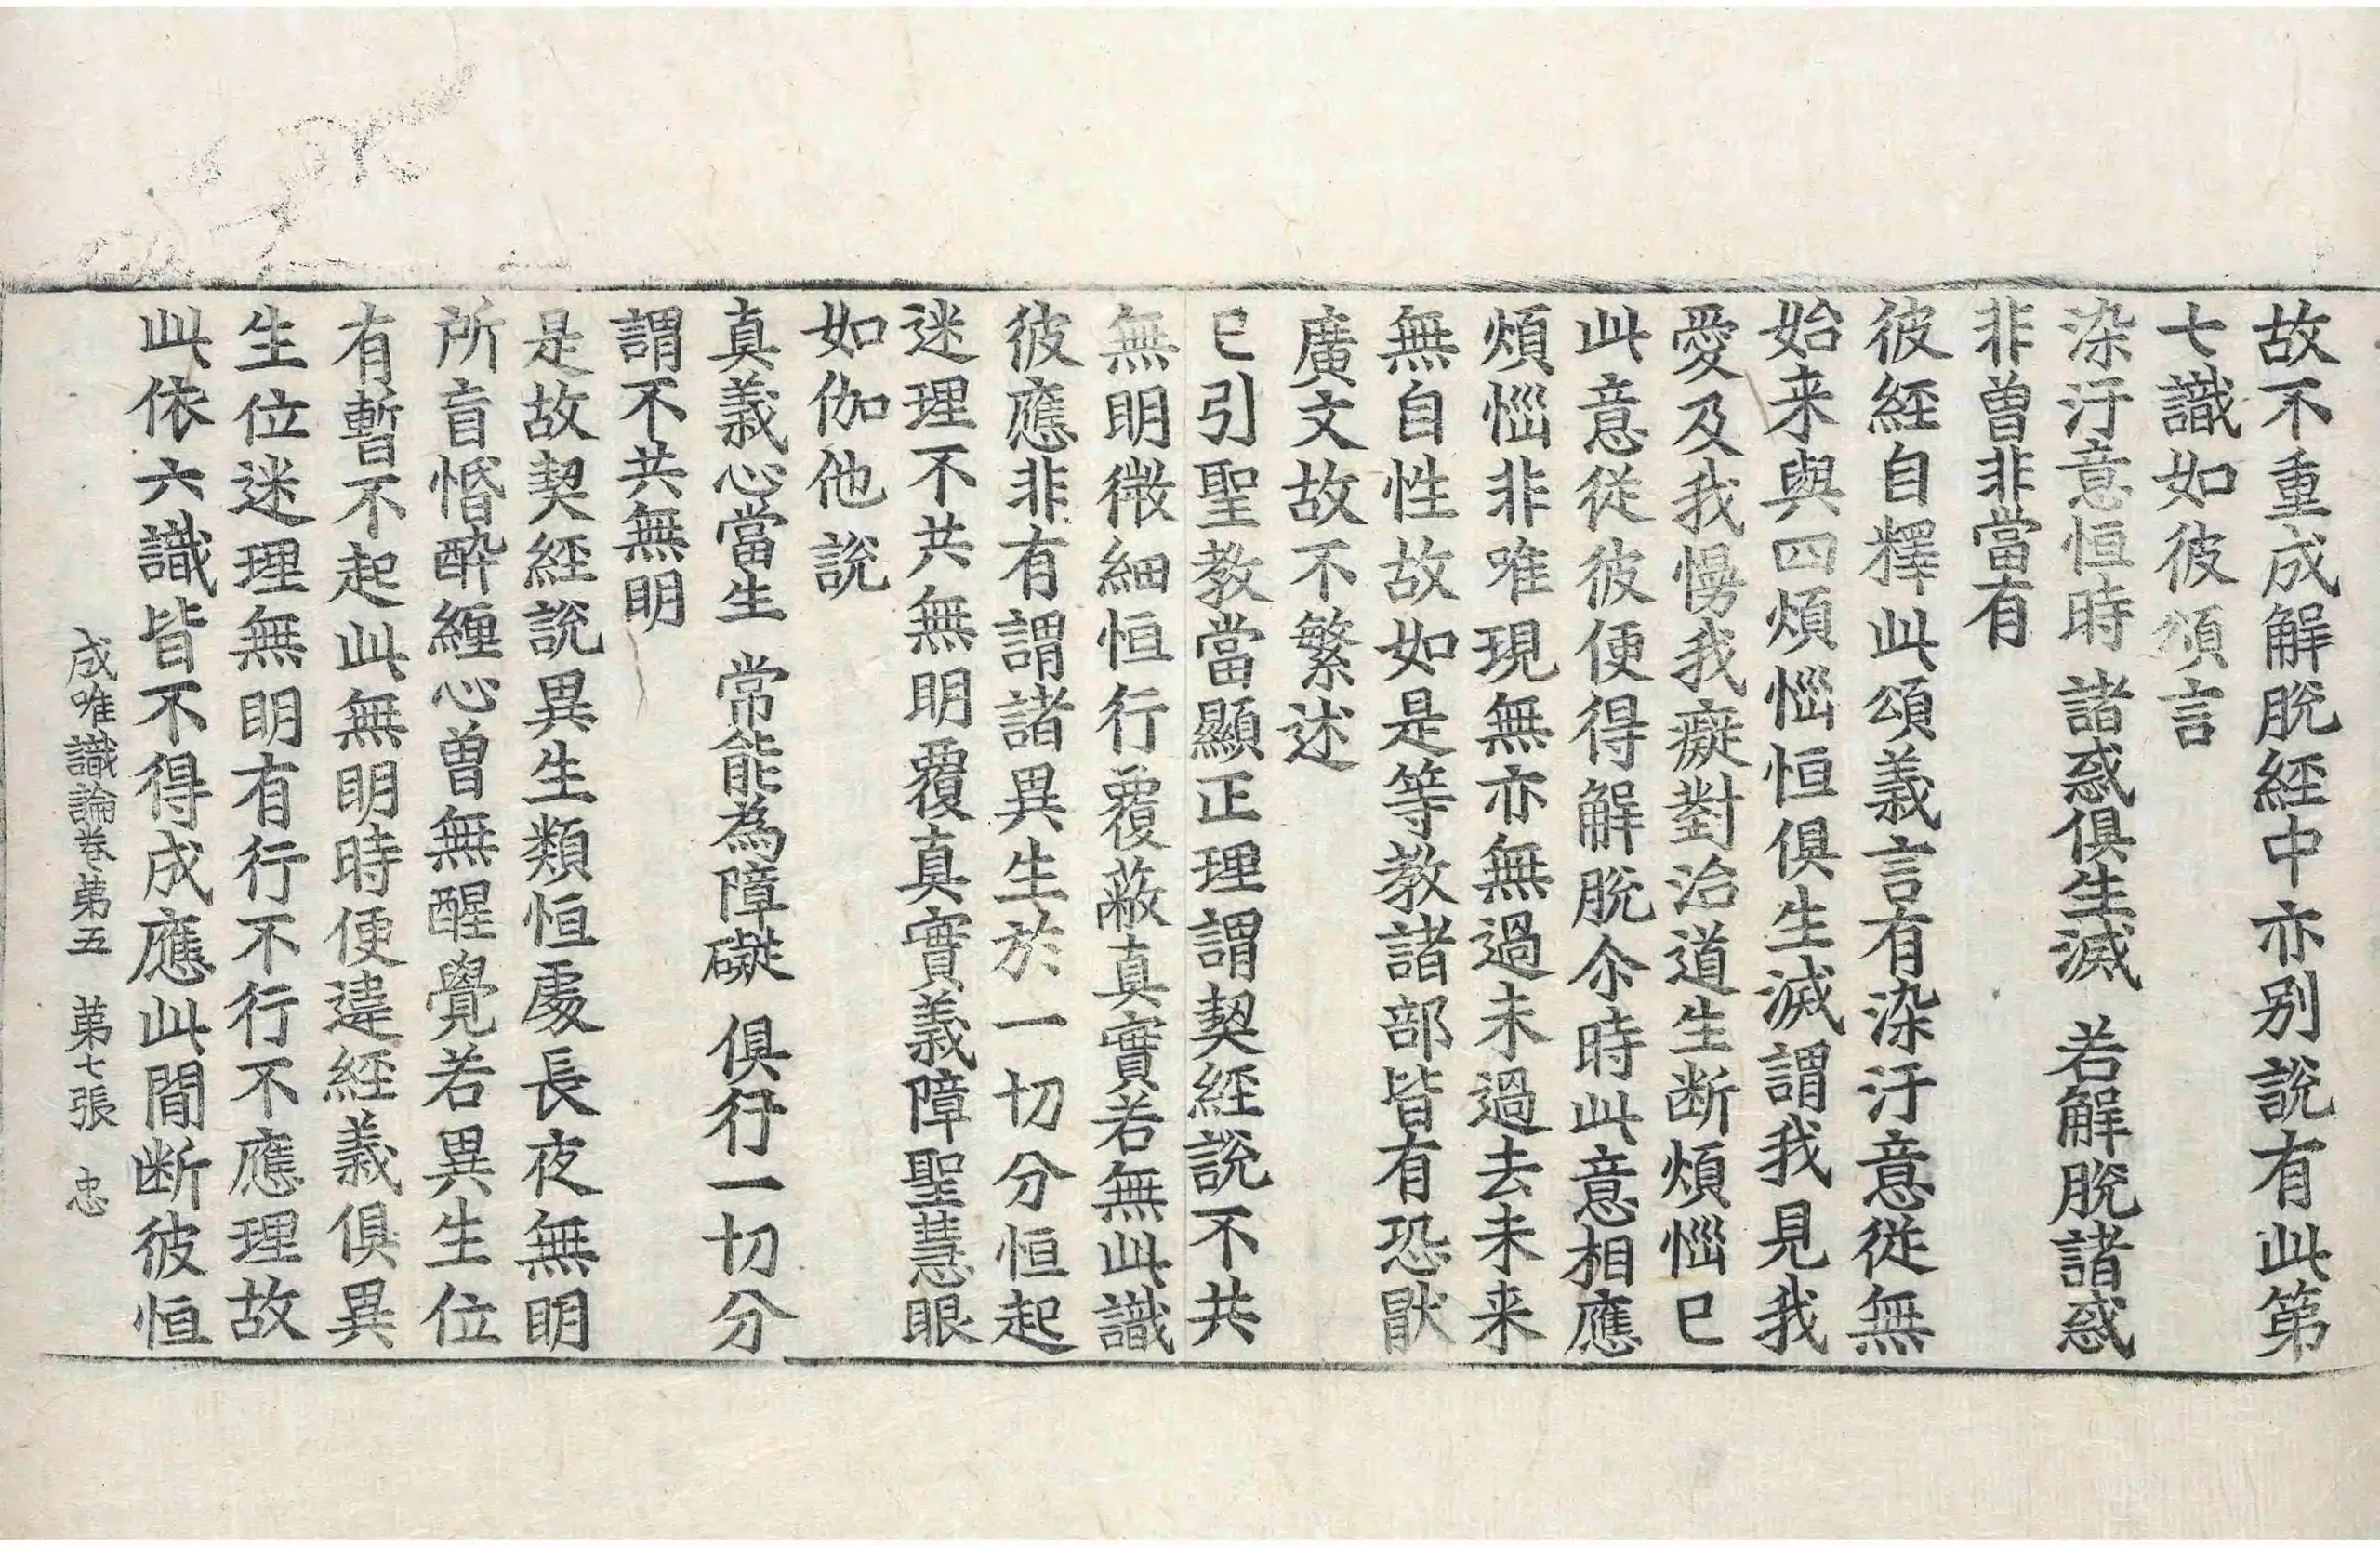 故不重成解脫經中亦別說有此第
七識如彼頌言
染汙意恒時 諸惑俱生滅 若解脫諸惑
非曾非當有
彼經自釋此頌義言有染汙意從無
始来與四煩惱恒俱生滅謂我見我
愛及我慢我癡對治道生断煩惱已
此意從彼便得解脫尒時此意相應
煩惱非唯現無亦無過未過去未来
無自性故如是等教諸部皆有恐猒
廣文故不繁述
已引聖教當顯正理謂契經說不共
無明微細恒行覆蔽真實若無此識
彼應非有謂諸異生於一切分恒起
迷理不共無明覆真實義障聖慧眼
如伽他說
真義心當生 常能為障礙 俱行一切分
謂不共無明
是故契經說異生類恒處長夜無明
所盲惛醉纏心曾無醒覺若異生位
有暫不起此無明時便違經義俱異
生位迷理無明有行不行不應理故
此依六識皆不得成應此間断彼恒
成唯識論卷第五 第七張 忠